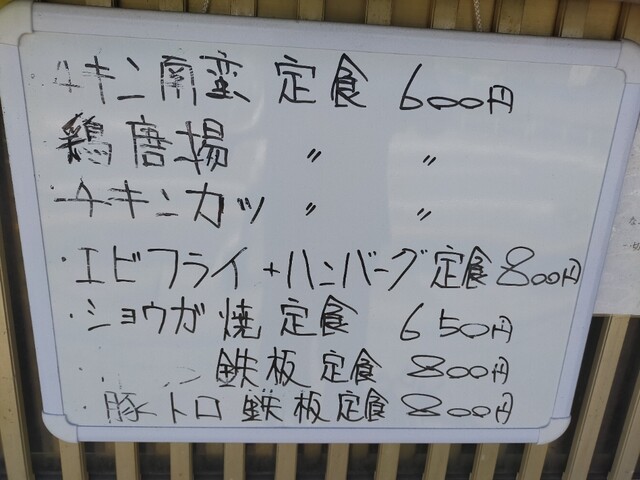 チキン南蛮定食 600円
鶏唐場 〃 〃
チキンカツ 〃 〃
・エビフライ+ハンバーグ定食 800円
・ショウガ焼定食 650円
・ 鉄板定食 800円
・豚トロ鉄板定食 800円